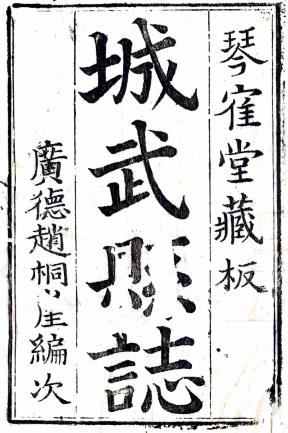 琴寉堂藏板
城武縣誌
廣德趙桐崖編次